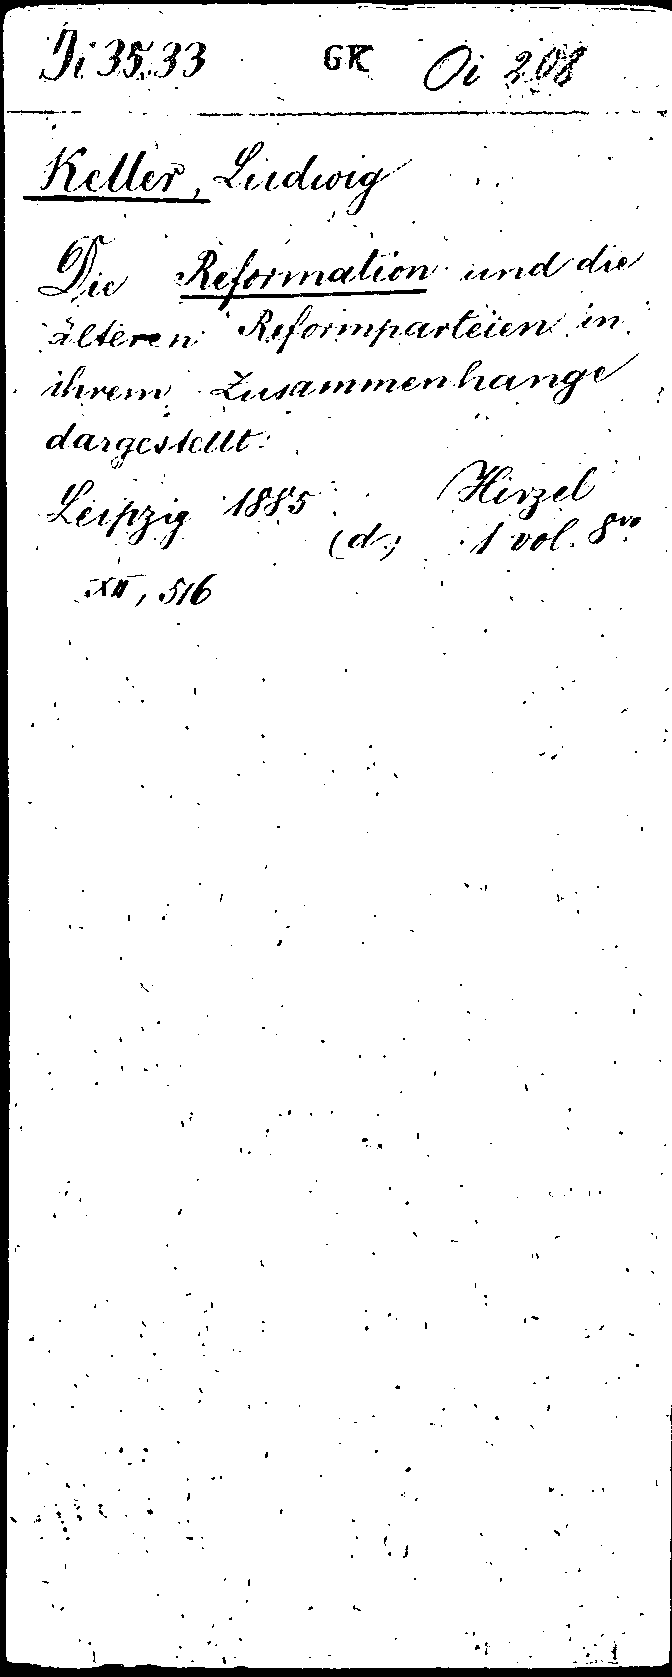 Ji 3533 GK Oi 208
Keller, Ludwig
Die Reformation und die
älteren Reformparteien in
ihrem Zusammenhange
dargestellt.
Hirzel
Leipzig 1885
(d.) 1 vol. 8vo
XII, 516